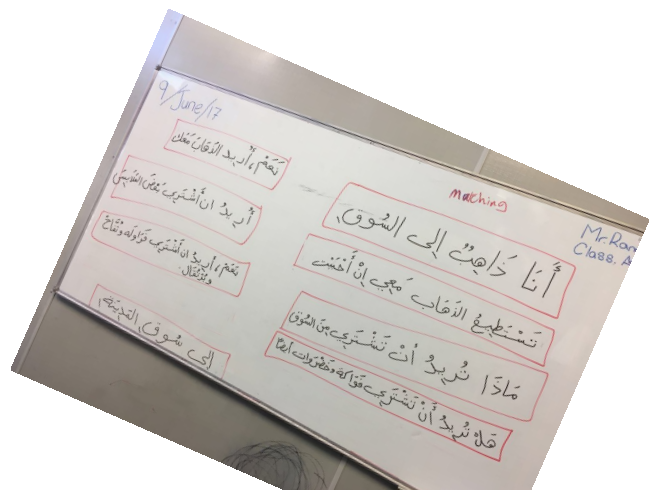 9/June/17
matching
Mr.Ran
Class. A
أَنَا ذَاهِبٌ إلى السُوق
تَسْتَطِيعُ الذَهَاب مَعِي إنْ أَحْبَبْتَ
مَاذَا تُرِيدُ أنْ تَشْتَرِي مِنَ السُوق
هَلْ تُرِيدُ أَنْ تَشْتَرِي فَوَاكِهَ وَخَضْرَوَات أيضاً
نَعَمْ، أريد الذَهَابَ مَعَكَ
أُرِيدُ ان أَشْتَرِي بَعْضَ
نَعَمْ، أُرِيدُ ان أَشْتَرِي فَرَاوِلَه وتُفَّاحْ
وَبُرْتُقَال.
إلى سُوقِ المَدِينَة